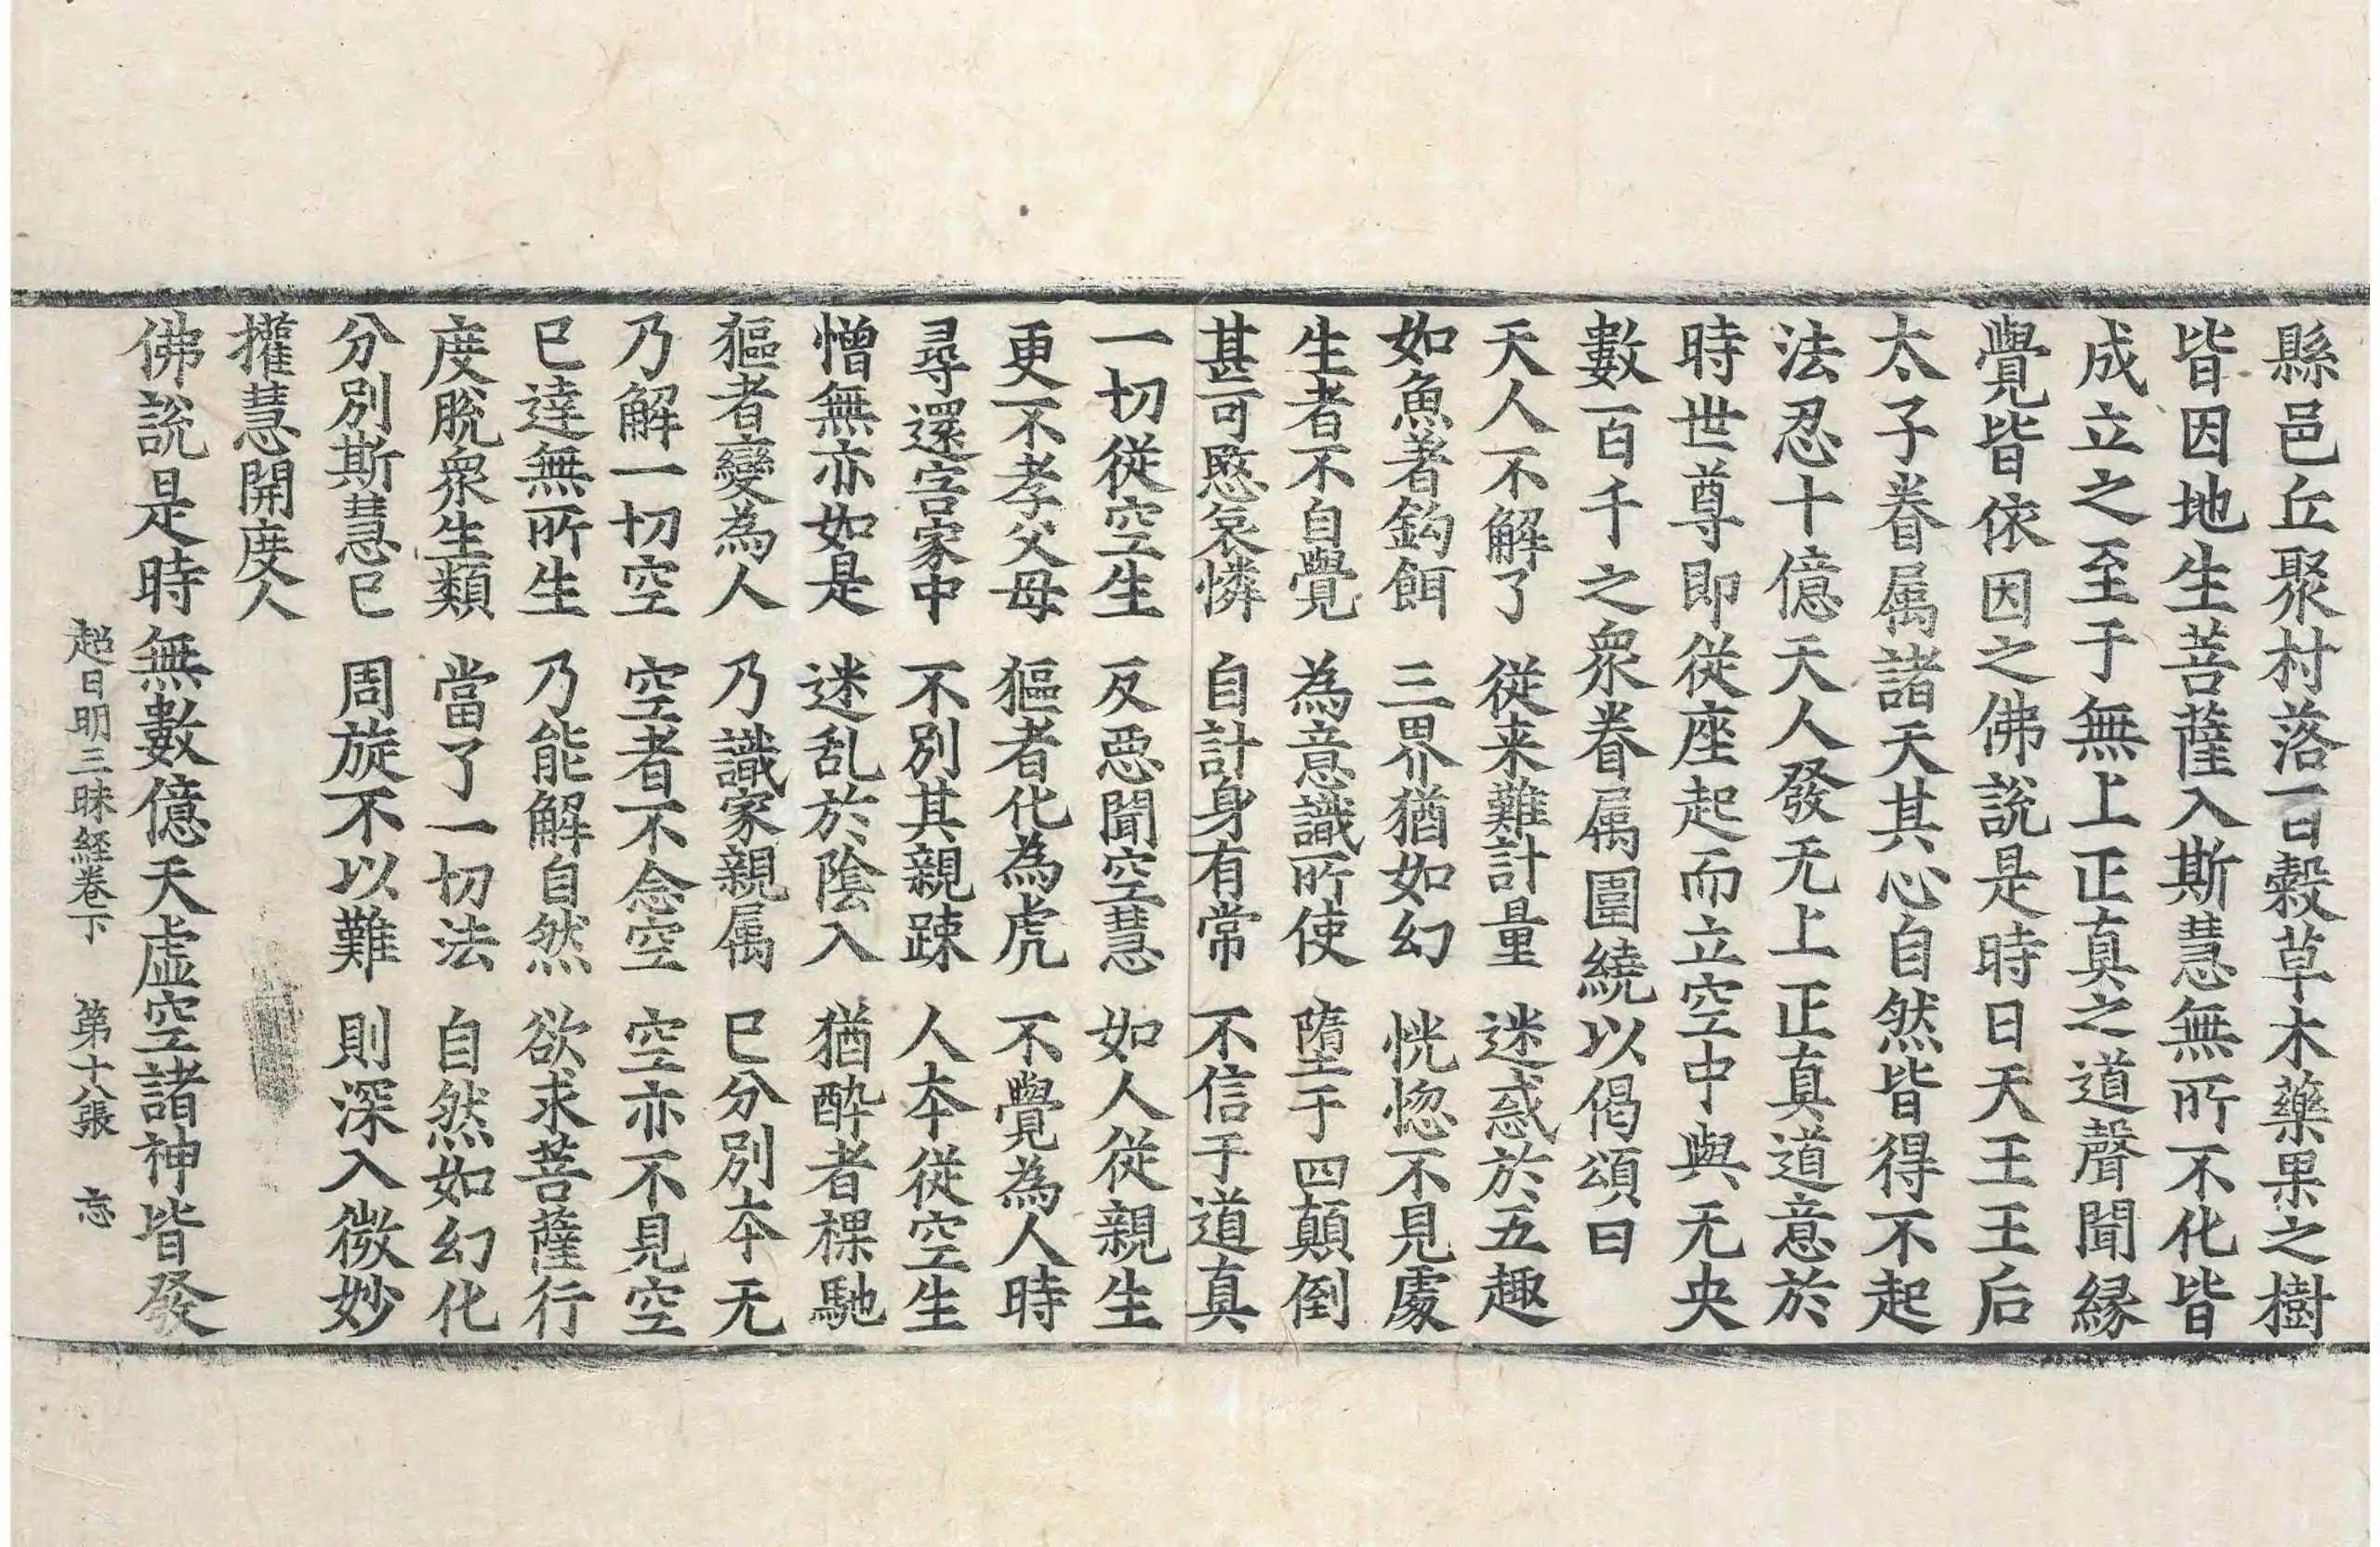 縣邑丘聚村落百穀草木藥果之樹
皆因地生菩薩入斯慧無所不化皆
成立之至于無上正真之道聲聞縁
覺皆依因之佛說是時日天王王后
太子眷属諸天其心自然皆得不起
法忍十億天人發无上正真道意於
時世尊即從座起而立空中與无央
數百千之衆眷属圍繞以偈頌曰
天人不解了 從来難計量 迷惑於五趣
如魚著鈎餌 三界猶如幻 恍惚不見處
生者不自覺 為意識所使 墮于四顛倒
甚可愍哀憐 自計身有常 不信于道真
一切從空生 反惡聞空慧 如人從親生
更不孝父母 貙者化為虎 不覺為人時
尋還害家中 不別其親踈 人夲從空生
憎無亦如是 迷乱於陰入 猶酔者裸馳
貙者變為人 乃識家親属 已分別夲无
乃解一切空 空者不念空 空亦不見空
已逹無所生 乃能解自然 欲求菩薩行
度脫衆生類 當了一切法 自然如幻化
分別斯慧已 周旋不以難 則深入微妙
攉慧開度人
佛說是時無數億天虛空諸神皆發
超日明三昧経卷下 第十八張 忘